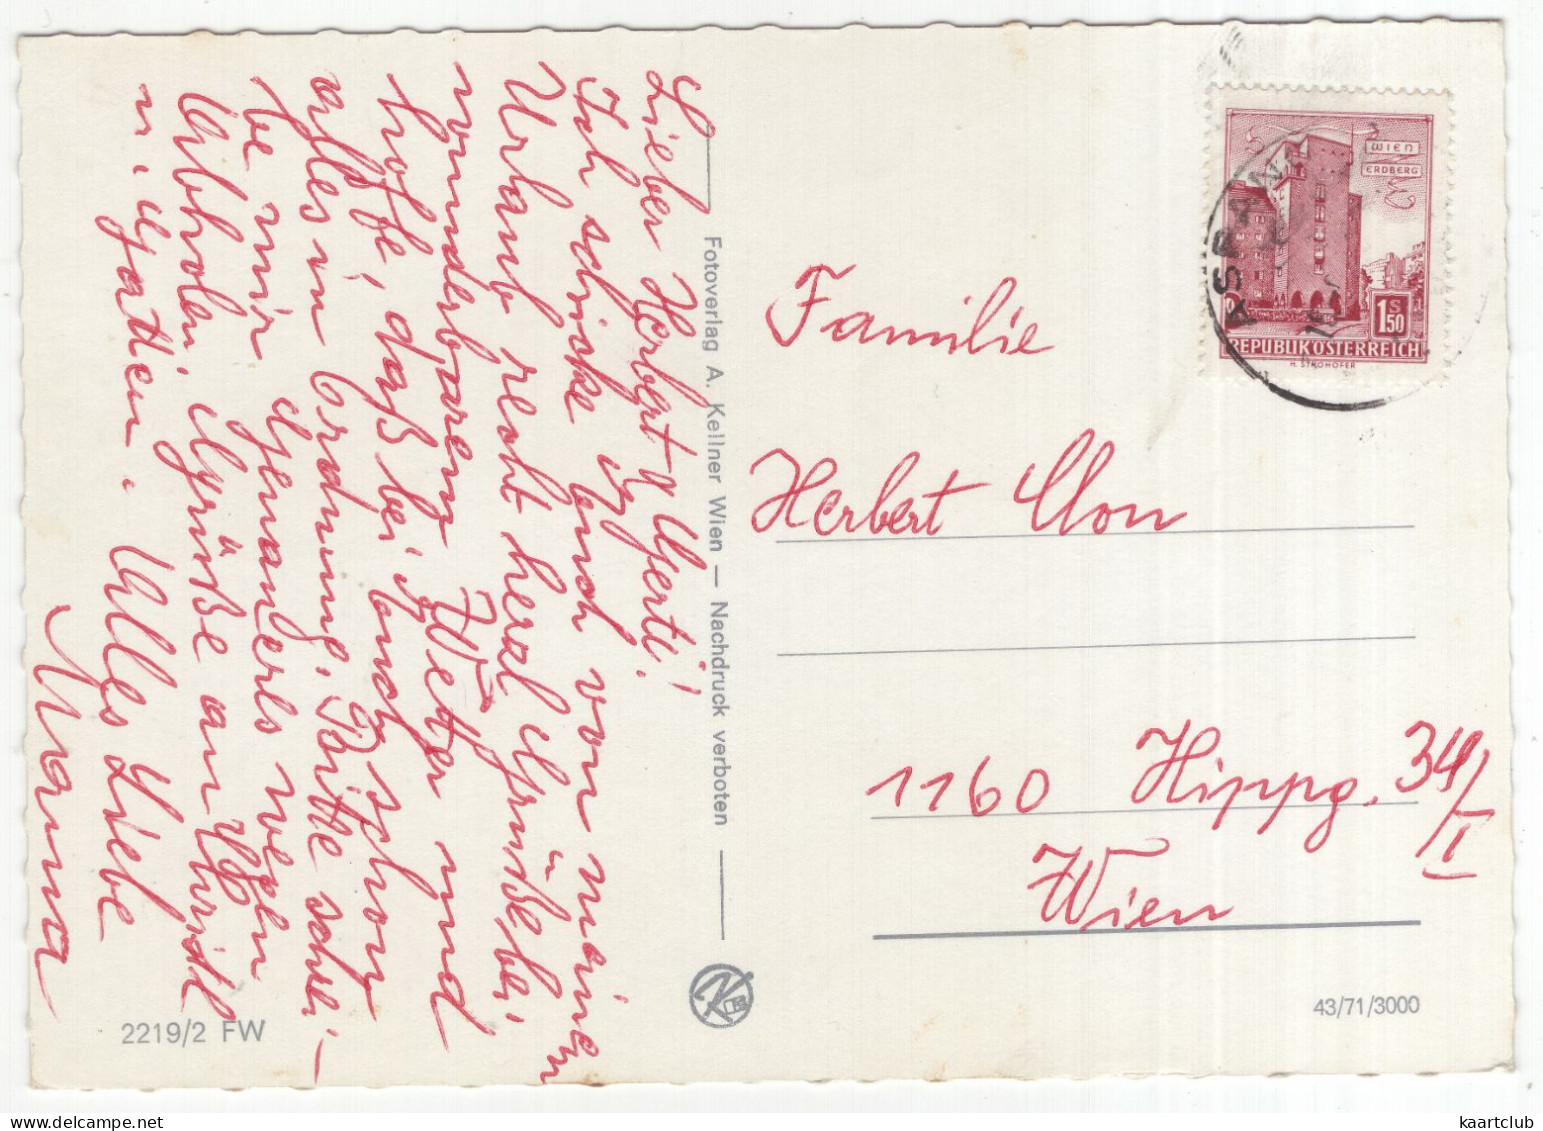 Lieber Herbert u Gerti!
Ich schicke Euch von meinem
Urlaub recht herzl Grüße bei
wunderbarem Wetter und
hoffe, daß bei Euch schon
alles in Ordnung. Bitte schrei-
be mir genauerls wegen
Abholen. Grüße an
u. Gatten. Alles Liebe
Mama
Fotoverlag A. Kellner Wien — Nachdruck verboten
2219/2 FW
WIEN
ERDBERG
1 S 50
REPUBLIK ÖSTERREICH
H. STROHOFER
ASPAN
Familie
Herbert
1160 Hippg. 34/I
Wien
43/71/3000
kaartclub